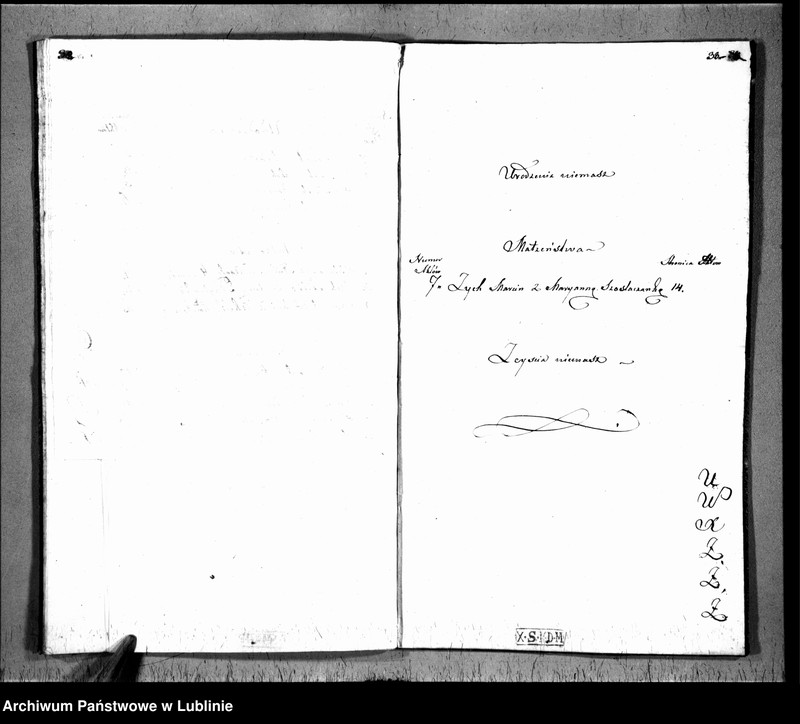 38.
Urodzenie niemasz
Małżeństwa
Numer
Aktów
Stronica Aktów
7. Zych Marcin z Maryanną Szostaczanką 14.
Zeyścia niemasz
U
W
X
Z.
Ź.
Ż
X·S·I·D·M
Archiwum Państwowe w Lublinie